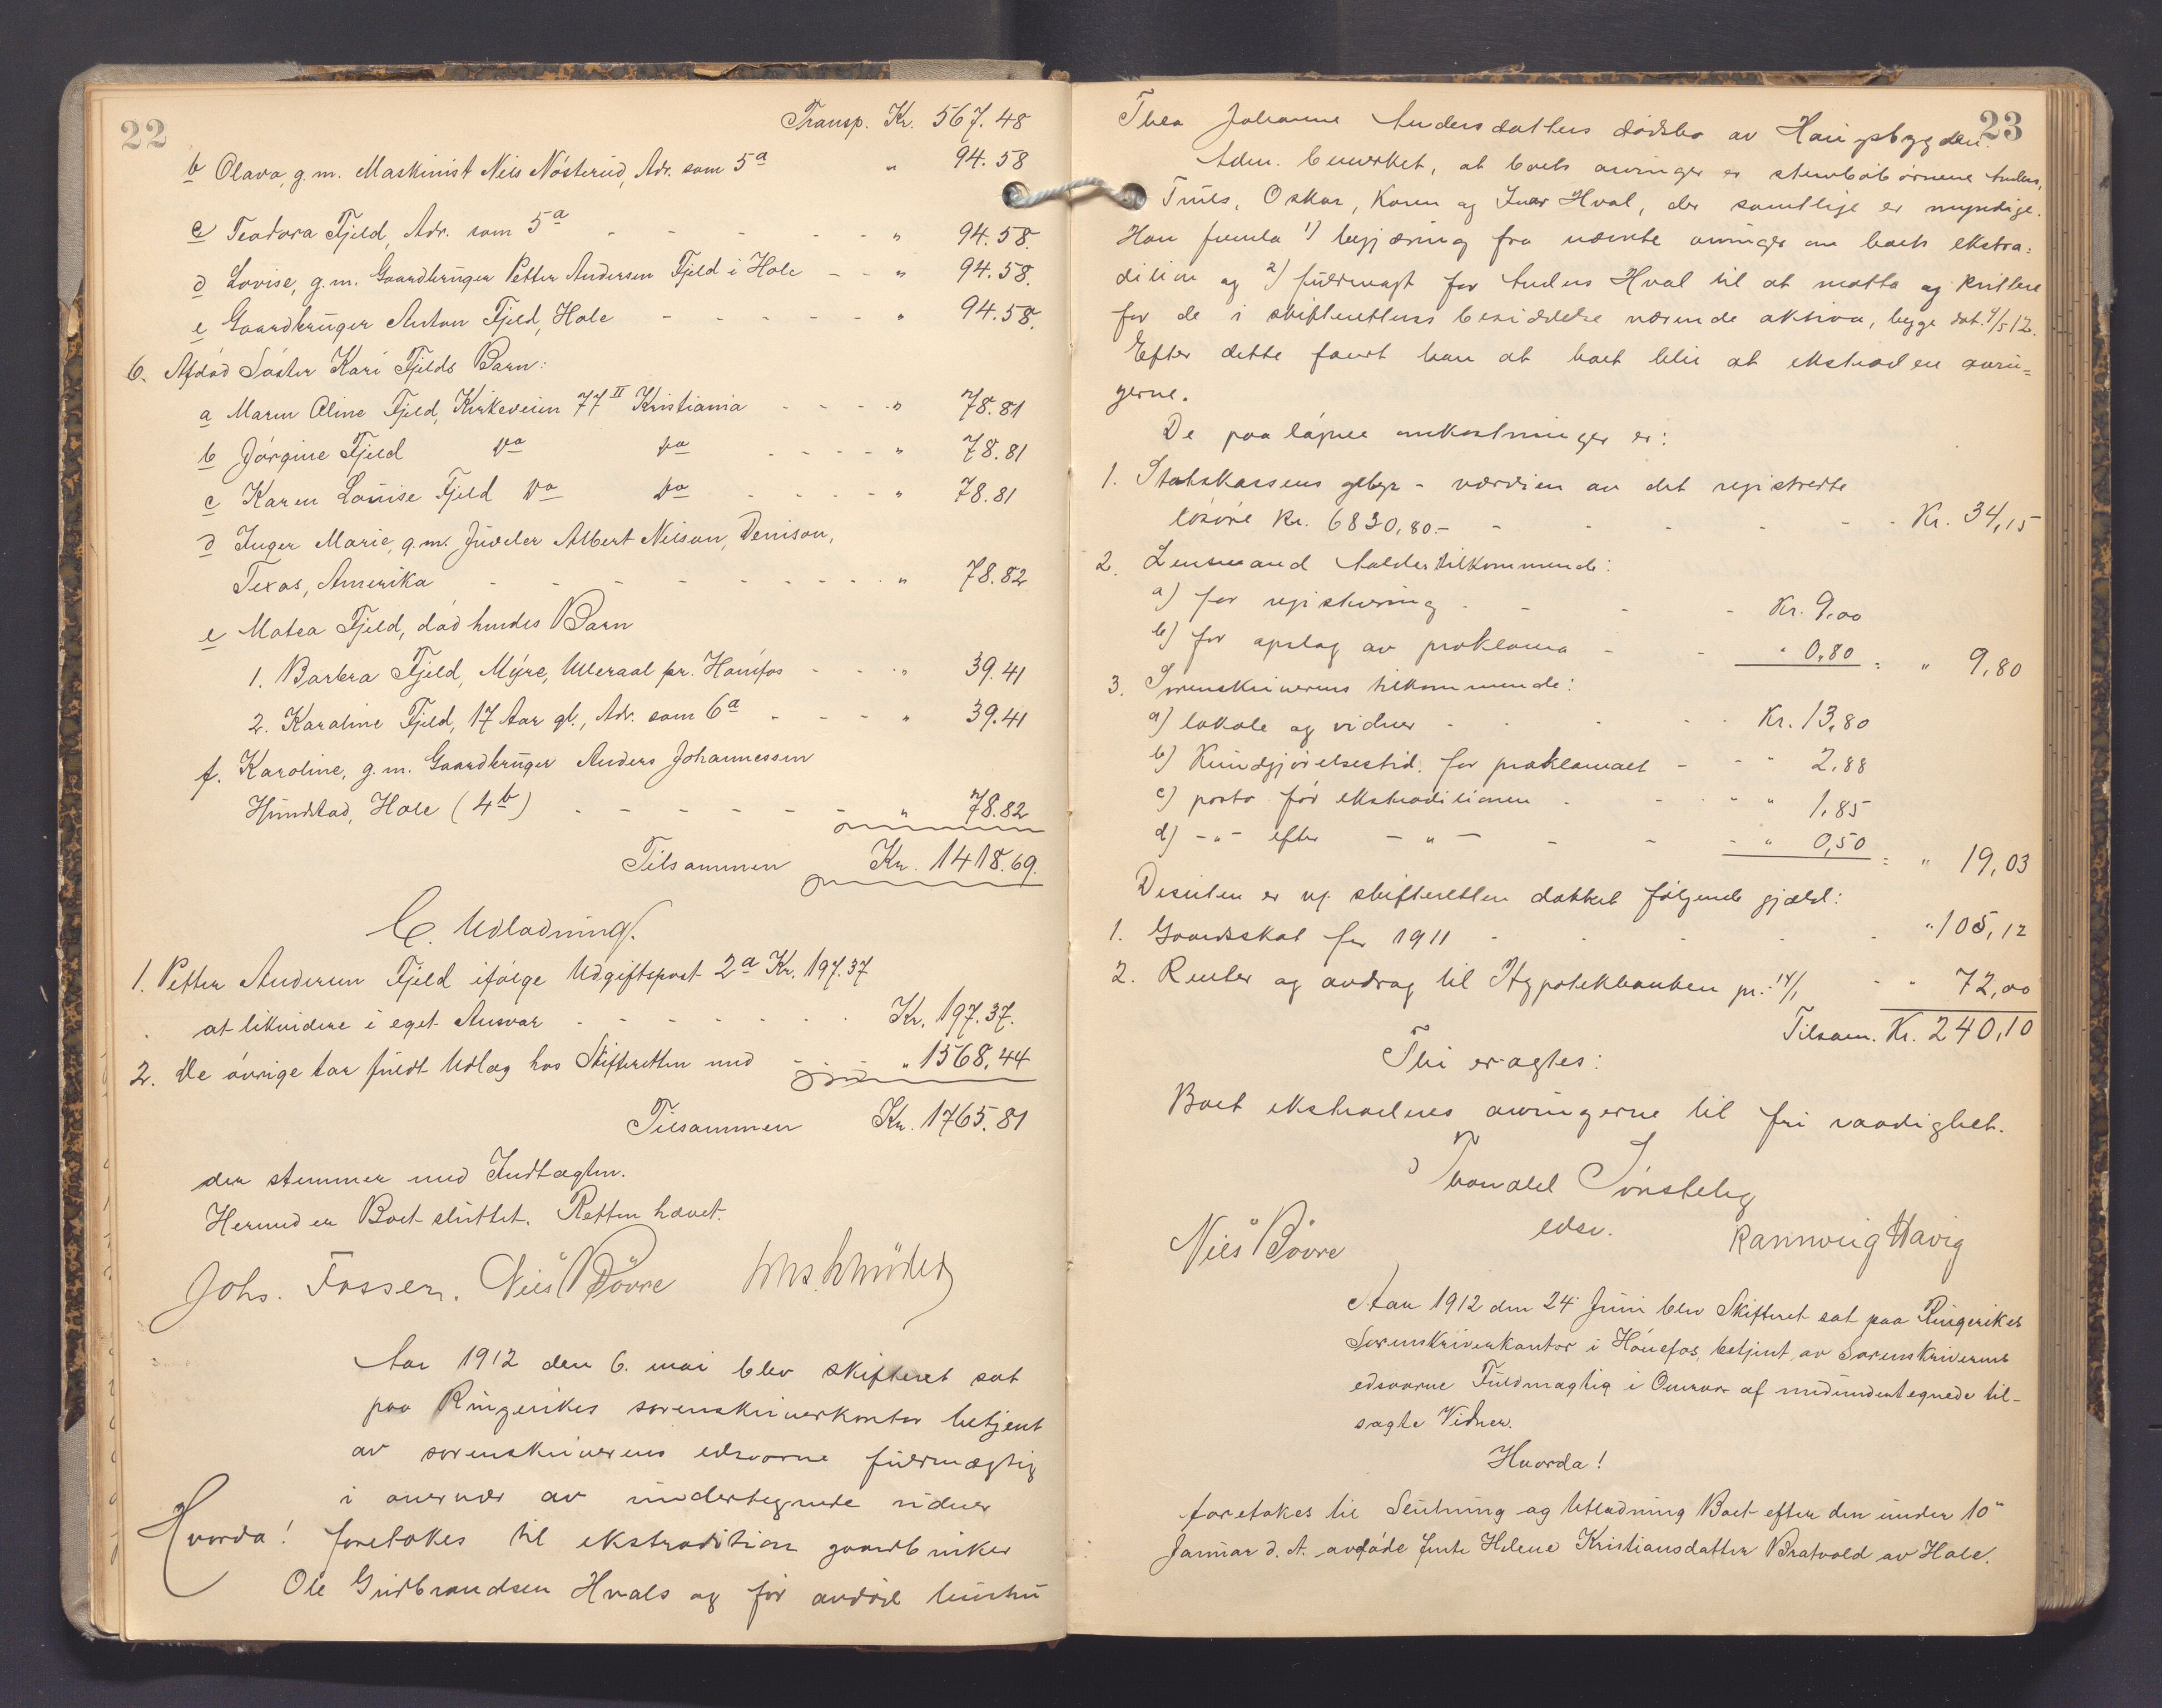 22
Transp. Kr. 567.48
b Olava, g.m. Maskinist Nils Nösterud, Adr. som 5a " 94.58
c Teodora Fjeld, Adr. som 5a - - - - - " 94.58.
d Lovise, g.m. Gaardbruger Petter Andersen Fjeld i Hole - - " 94.58.
e Gaardbruger Anton Fjeld, Hole - - - - - " 94.58.
6. Afdöd Söster Kari Fjelds Barn:
a Maren Oline Fjeld, Kirkeveien 77 II Kristiania - - - - " 78.81
b Jörgine Fjeld Do Do - - - - " 78.81
c Karen Louise Fjeld Do Do - - - - " 78.81
d Inger Marie, g.m. Juveler Albert Nilson, Denison,
Texas, Amerika - - - - - - - - - " 78.82
e Matea Fjeld, död hendes Barn
1. Barbra Fjeld, Myre, Ulleraal pr. Hönefos - - - " 39.41
2. Karoline Fjeld, 17 Aar gl., Adr. som 6a - - - " 39.41
f. Karoline, g.m. Gaardbruger Anders Johannessen
Hundstad, Hole (4b) - - - - - - " 78.82
Tilsammen Kr. 1418.69.
C. Udlodning.
1. Petter Andersen Fjeld ifölge Udgiftspost 2a Kr. 197.37
at likvidere i eget Ansvar - - - - - - - Kr. 197.37.
2. De övrige har fuldt Udlæg hos Skifteretten med - - - " 1568.44
Tilsammen Kr. 1765.81
der stemmer med Indtægten.
Hermed er Boet sluttet. Retten hævet.
Johs. Fossen. Nils Bövre
Aar 1912 den 6. mai blev skifteret sat
paa Ringerikes sorenskriverkontor betjent
av sorenskriverens edsvorne fuldmægtig
i overvær av undertegnede vidner
Hvorda! foretokes til ekstradition gaardbruker
Ole Gudbrandsen Hvals og før avdøde hustru
23
Thea Johanne Andersdatters dødsbo av Haugsbygden.
Adm. bemerket, at boets arvinger er sterbobörnene Anders,
Truls, Oskar, Karen og Ivar Hval, der samtlige er myndige.
Han fremla 1) begjæring fra nævnte arvinger om boets ekstra=
dition og 2) fuldmagt for Anders Hval til at motta og kvittere
for de i skifterettens besiddelse værende aktiva, begge dat. 4/5 12.
Efter dette fandt han at boet blir at ekstradere arvin=
gerne.
De paaløpne omkostninger er:
1. Statskassens gebyr - værdien av det registrerte
løsøre kr. 6830,80.- - - - - - - Kr. 34,15
2. Lensmand Aalders tilkommende:
a) for registrering - - - - Kr. 9,00
b) for opslag av proklama - - " 0,80 = " 9,80
3. Sorenskriverens tilkommende:
a) lokale og vidner - - - - Kr. 13,80
b) Kundgjörelsestid. for proklamaet - - " 2,88
c) porto før ekstraditionen - - - " 1,85
d) -"- efter -"- - - - " 0,50 = " 19,03
Desuten er v. skifteretten dækket følgende gjæld:
1. Gaardsskat for 1911 - - - - - " 105,12
2. Renter og avdrag til Hypotekbanken pr. 14/1 - - " 72,00
Tilsam. Kr. 240,10
Thi eragtes:
Boet ekstraderes arvingerne til fri raadighet.
edsv.
Nils Bövre Rannveig Havig
Aar 1912 den 24 Juni blev Skifteret sat paa Ringerikes
Sorenskriverkontor i Hönefos, betjent av Sorenskriverens
edsvorne Fuldmægtig i Overvær af medundertegnede til-
sagte Vidner.
Hvorda!
foretokes til Slutning og Utlodning Boet efter den under 10"
Januar d. A. avdöde Jente Helene Kristiansdatter Bratvold av Hole.